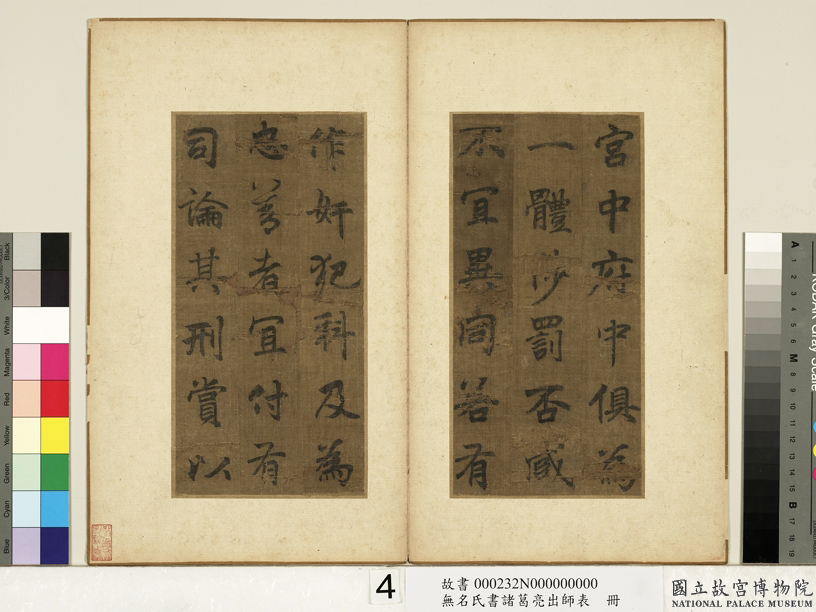 宮中府中俱為
一體陟罰否臧
不宜異同若有
作奸犯科及為
忠善者宜付有
司論其刑賞以
4
故書 000232N000000000
無名氏書諸葛亮出師表 冊
國立故宮博物院
NATIONAL PALACE MUSEUM
Black
3/Color
White
Magenta
Red
Yellow
Green
Cyan
Blue
A 1 2 3 4 5 6 M 8 9 10 11 12 13 14 15 B 17 18 19